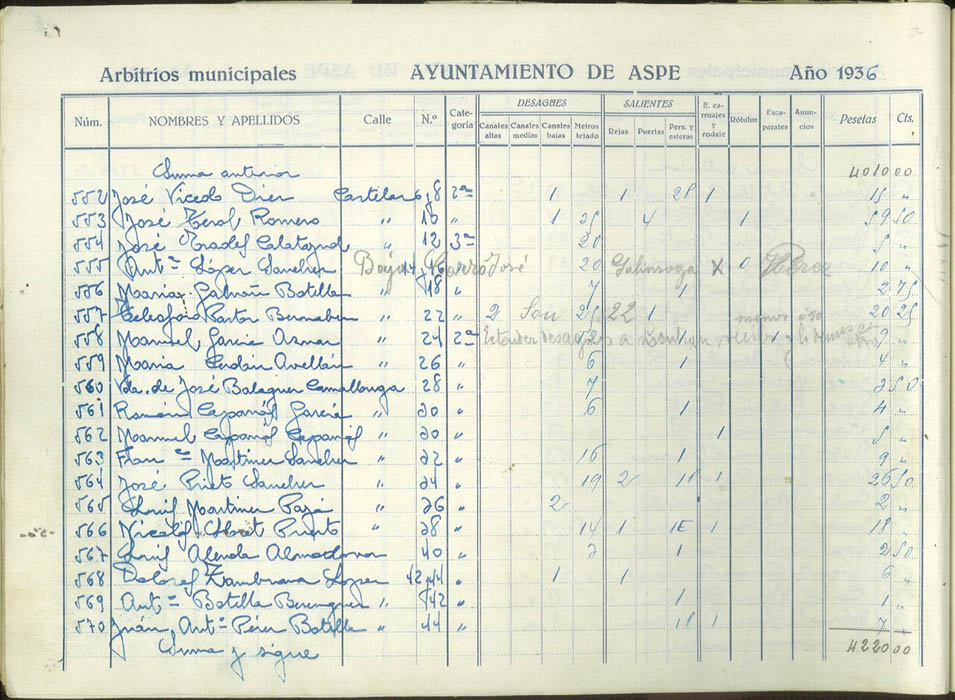 Arbitrios municipales AYUNTAMIENTO DE ASPE Año 1936
DESAGUES SALIENTES
Núm. NOMBRES Y APELLIDOS Calle N.º Cate-goría Canales altas Canales medias Canales bajas Metros tejado Rejas Puertas Pers. y esteras R. ca-rruajes y rodaje Rótulos Esca-parates Anun-cios Pesetas Cts.
Suma anterior 4010 00
552 José Vicedo Díez Castelar 6,8 2ª 1 1 28 1 15 "
553 José Terol Romero " 10 " 1 25 4 1 59 50
554 José Pradel Calatayud " 12 3ª 20 5 "
555 Antº López Sánchez 14,16 José 20 X 0 10 "
556 María Galván Botella " 18 " 7 1 2 75
557 Pastor Bernabeu " 22 " 2 Son 25 22 1 menos 20 25
558 Manuel García Aznar " 24 2ª desagues a 1 1
559 María Cerdán Avellán " 26 " 6 1 4 "
560 Vda. de José Balaguer " 28 " 7 50
561 Ramón Caparrós García " 30 " 6 1 4 "
562 Manuel Caparrós Caparrós " 30 " 1 5 "
563 Franco Martínez Sánchez " 32 " 16 1 9 "
564 José Prieto Sánchez " 34 " 19 2 18 1 26 50
565 Luis Martínez Payá " 36 " 2 2 "
566 Nicolás Prieto " 38 " 14 1 1E 1 18 "
567 Luis Alenda Almodóvar " 40 " 1 2 50
568 Dolores Zambrana López 42,44 " 1 1 6 "
569 Antº Botella Berenguer " 42 " 1 1 "
570 Juan Antº Pérez Botella " 44 " 18 1 7 "
Suma y sigue 4220 00